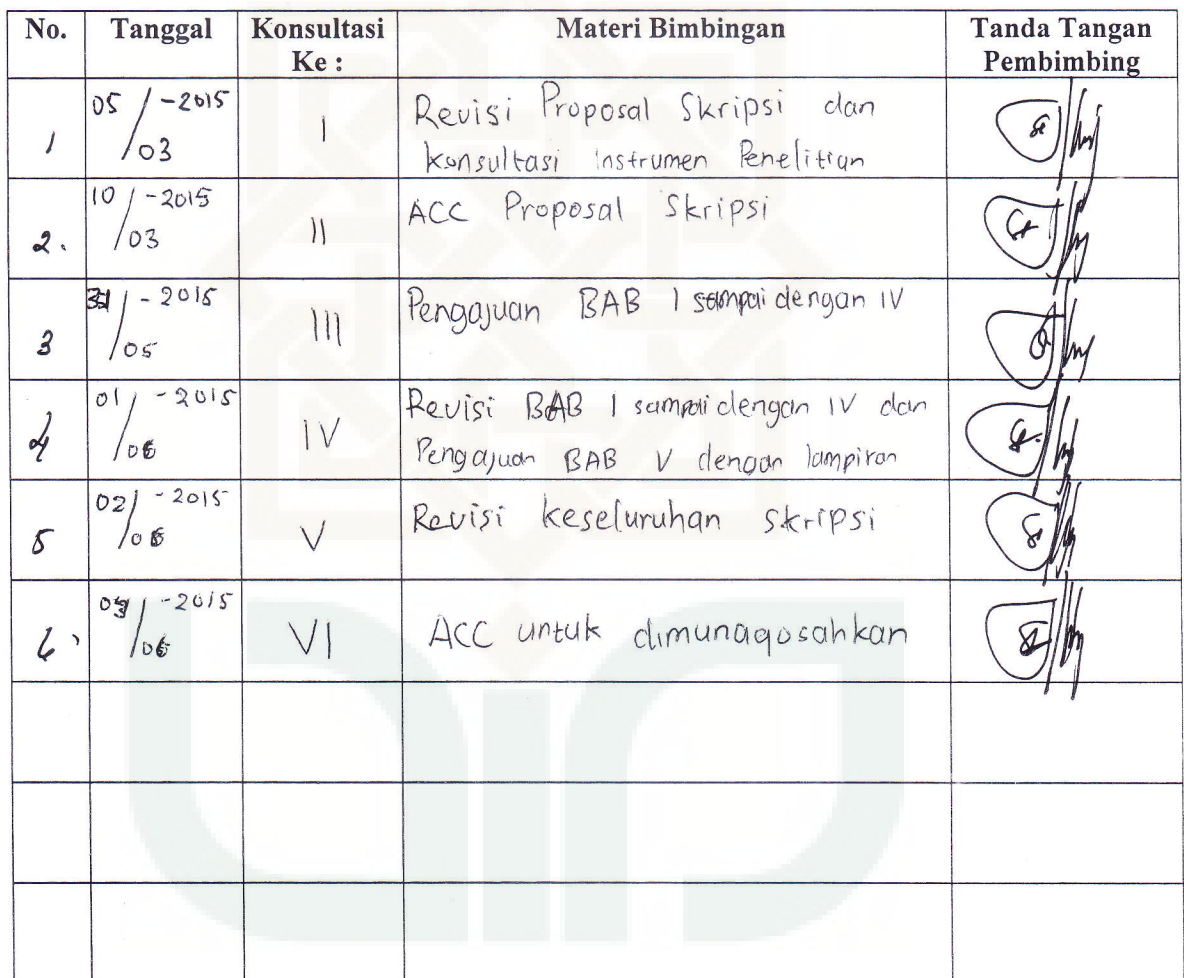 No. Tanggal Konsultasi Ke : Materi Bimbingan Tanda Tangan Pembimbing
1 05/03 -2015 I Revisi Proposal Skripsi dan
konsultasi instrumen Penelitian
2. 10/03 -2015 II ACC Proposal Skripsi
3 /05 - 2015 III Pengajuan BAB I sampai dengan IV
4 01/06 - 2015 IV Revisi BAB I sampai dengan IV dan
Pengajuan BAB V dengan lampiran
5 02/06 - 2015 V Revisi keseluruhan skripsi
6. /06 -2015 VI ACC untuk dimunaqosahkan